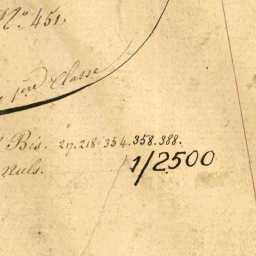 N.º 451.
1ère Classe
Bis. 217. 218. 354. 358. 388.
nuls.
1/2500